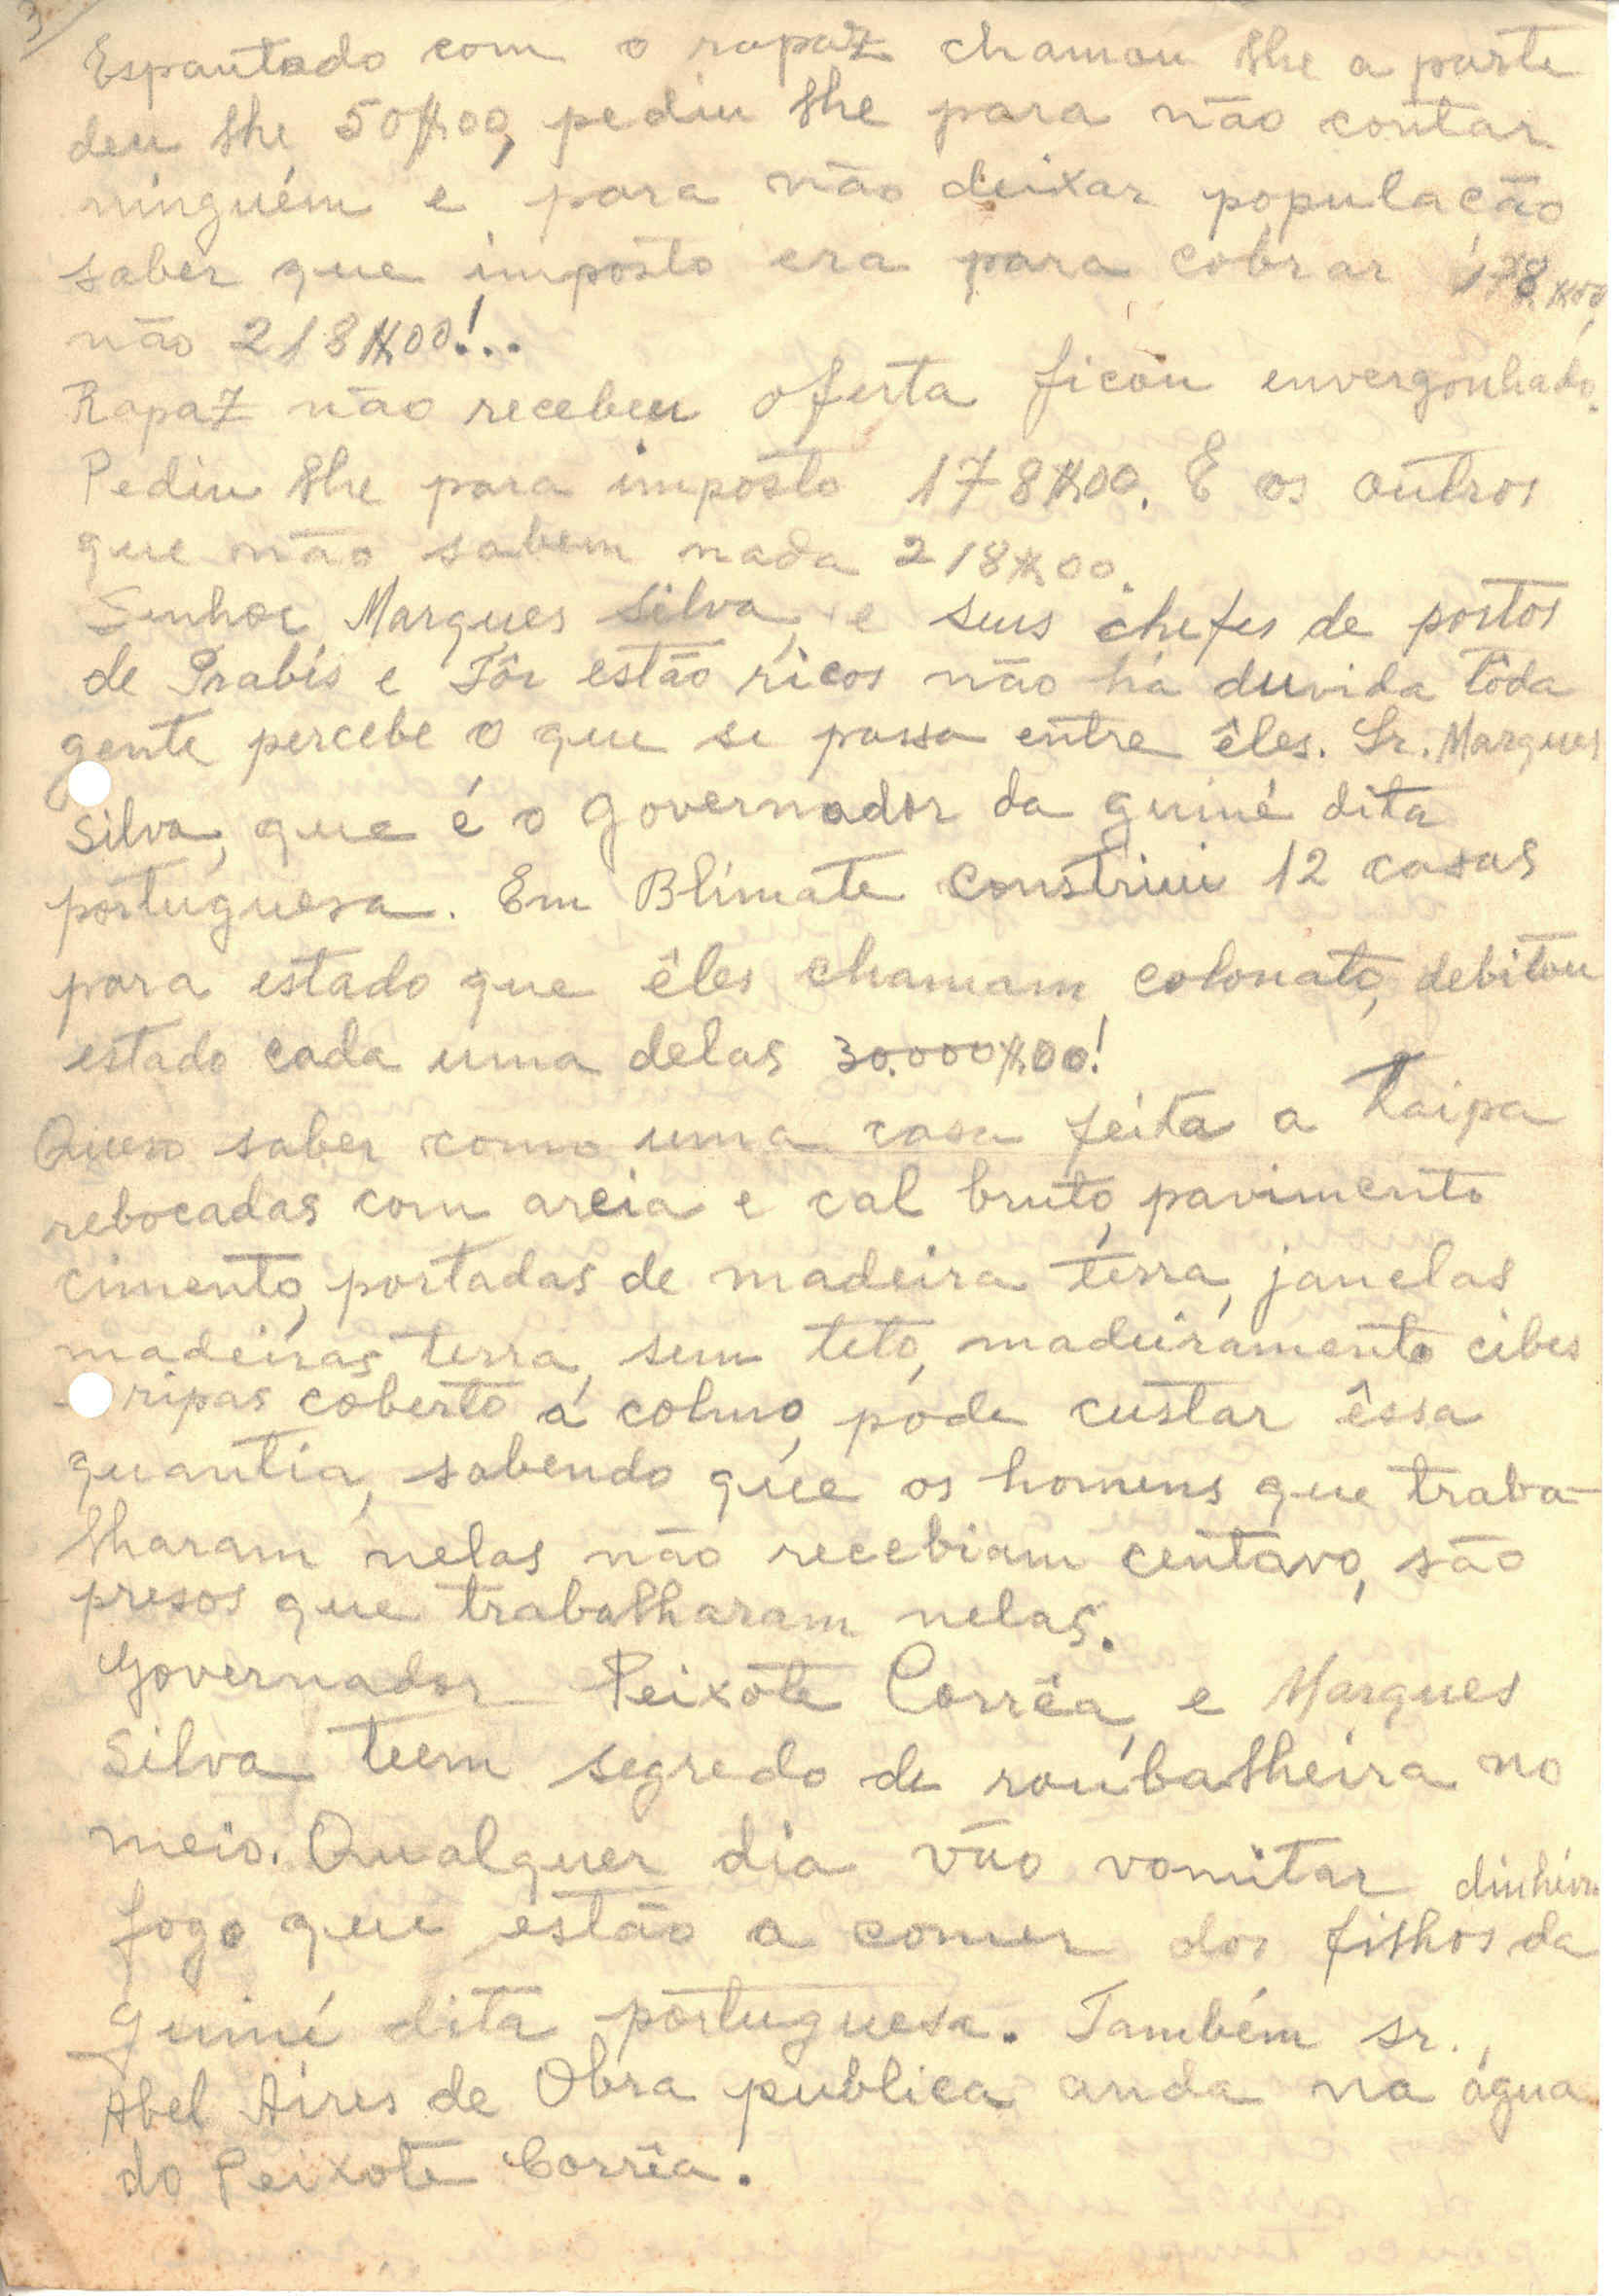 3
Espantado com o rapaz chamou lhe a parte
deu lhe 50$00, pediu lhe para não contar
ninguém e para não deixar população
saber que imposto era para cobrar 178$00
não 218$00!...
Rapaz não recebeu oferta ficou envergonhado.
Pediu lhe para imposto 178$00. E os outros
que não sabem nada 218$00.
Senhor Marques Silva, e seus chefes de postos
de Prabis e Tôr estão ricos não há duvida tôda
gente percebe o que se passa entre êles. Sr. Marques
Silva, que é o governador da guiné dita
portuguesa. Em Blimate construi 12 casas
para estado que êles chamam colonato, debitou
estado cada uma delas 30.000$00!
Quero saber como uma casa feita a taipa
rebocadas com areia e cal bruto, pavimento
cimento, portadas de madeira terra, janelas
madeiras terra, sem teto, madeiramento cibes
ripas coberto á colmo, pode custar êssa
quantia, sabendo que os homens que traba-
lharam nelas não recebiam centavo, são
presos que trabalharam nelas.
Governador Peixote Corrêa, e Marques
Silva teem segredo de roubalheira no
meio. Qualquer dia vão vomitar dinheiro
fogo que estão a comer dos filhos da
guiné dita portuguesa. Também sr.
Abel Aires de Obra publica anda na água
do Peixote Corrêa.